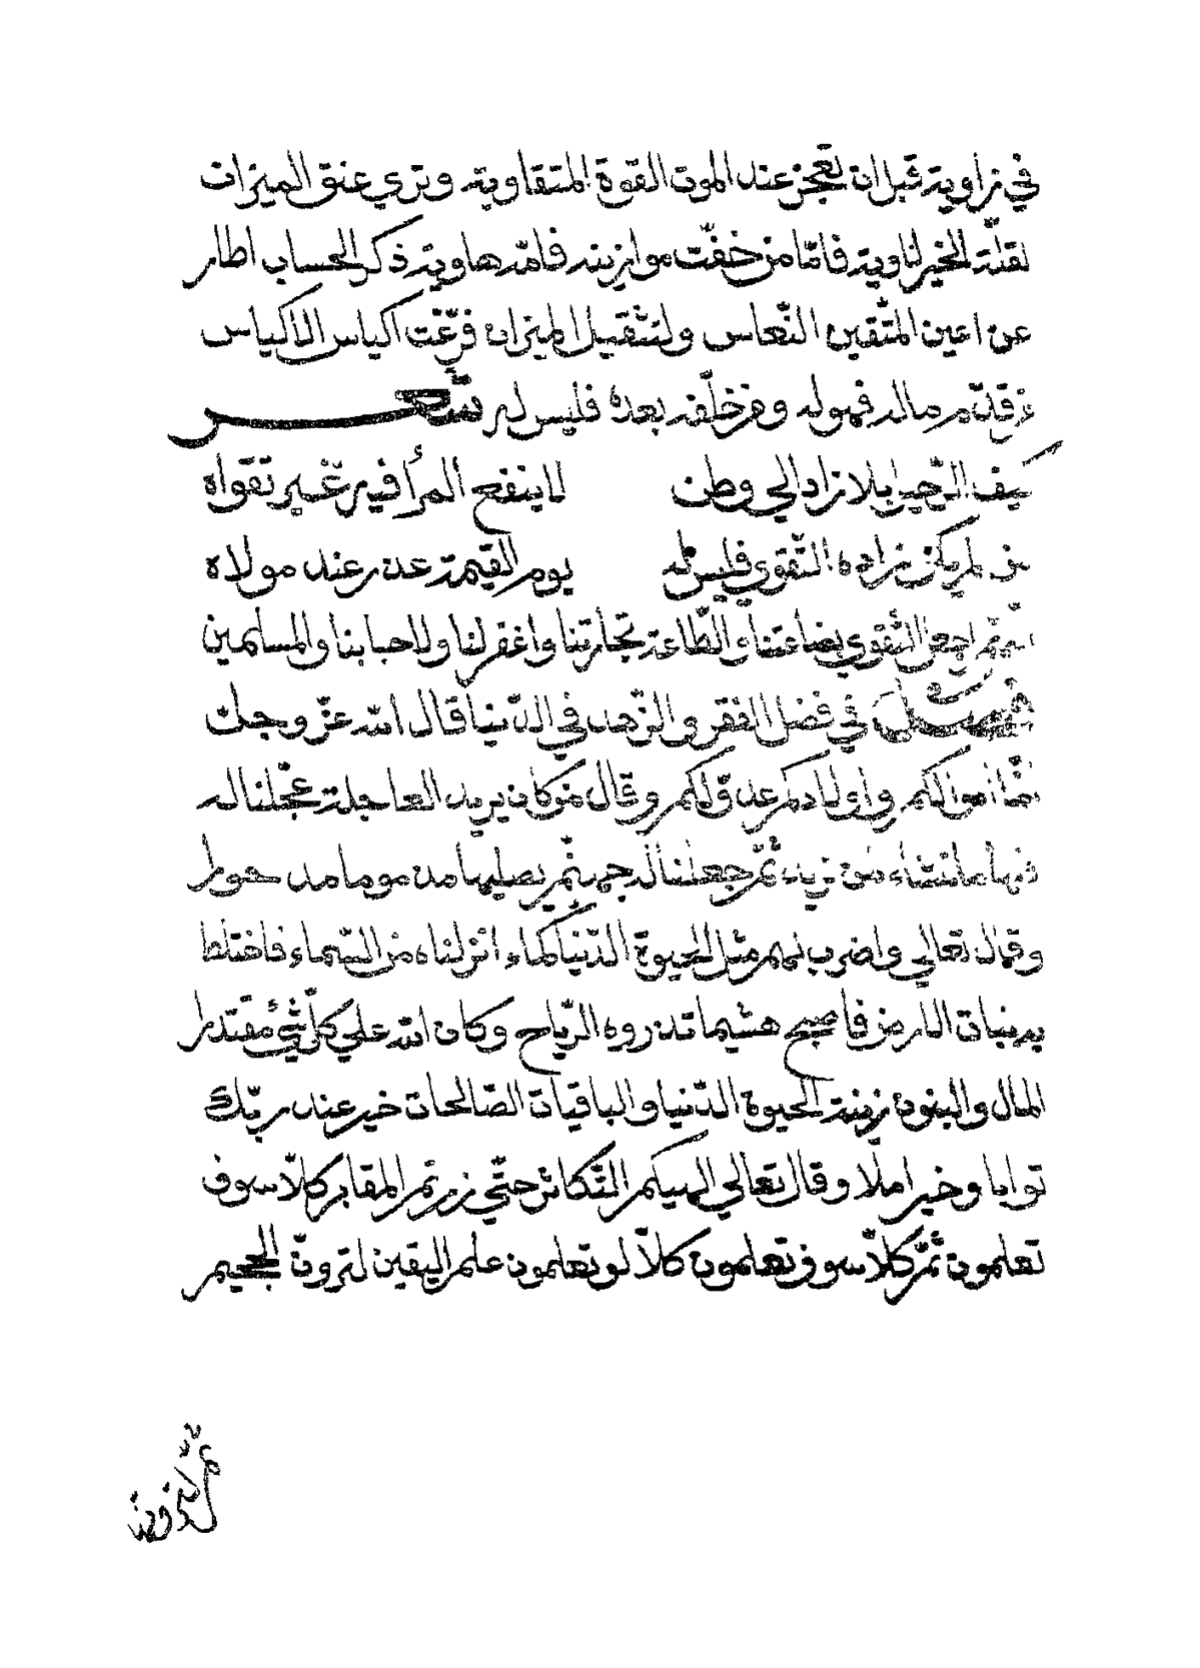 في زاوية قبل ان تعجز عند الموت القوة المتقاوية وتري عنق الميزان
لقلّة الخير لاوية فامّا من خفّت موازينه فامّه هاوية ذكر الحساب اطار
عن اعين المتّقين النّعاس ولتثقيل الميزان فرّغت اكياس الاكياس
قدّم ماله فهوله ومن خلّفه بعده فليس له شعر
كيف الرّحيل بلا زاد الي وطن لا ينفع المرأ فيه غير تقواه
من لم يكن زاده التّقوي فليس له يوم القيمة عذر عند مولاه
اجعل التّقوي بضاعتنا والطّاعة تجارتنا واغفر لنا ولاحبابنا والمسلمين
في فضل الفقر والزّهد في الدّنيا قال الله عزّ وجلّ
انّما اموالكم واولادكم عدوّ لكم وقال من كان يريد العاجلة عجّلنا له
فيها ما نشاء لمن نريد ثمّ جعلنا له جهنّم يصليها مذموما مدحورا
وقال تعالي واضرب لهم مثل الحيوة الدّنيا كماء انزلناه من السّماء فاختلط
به نبات الارض فاصبح هشيما تذروه الرّياح وكان الله علي كلّ شيء مقتدرا
المال والبنون زينة الحيوة الدّنيا والباقيات الصّالحات خير عند ربّك
ثوابا وخير املا وقال تعالي الهيكم التّكاثر حتّي زرتم المقابر كلّا سوف
تعلمون ثمّ كلّا سوف تعلمون كلّا لو تعلمون علم اليقين لترونّ الجحيم